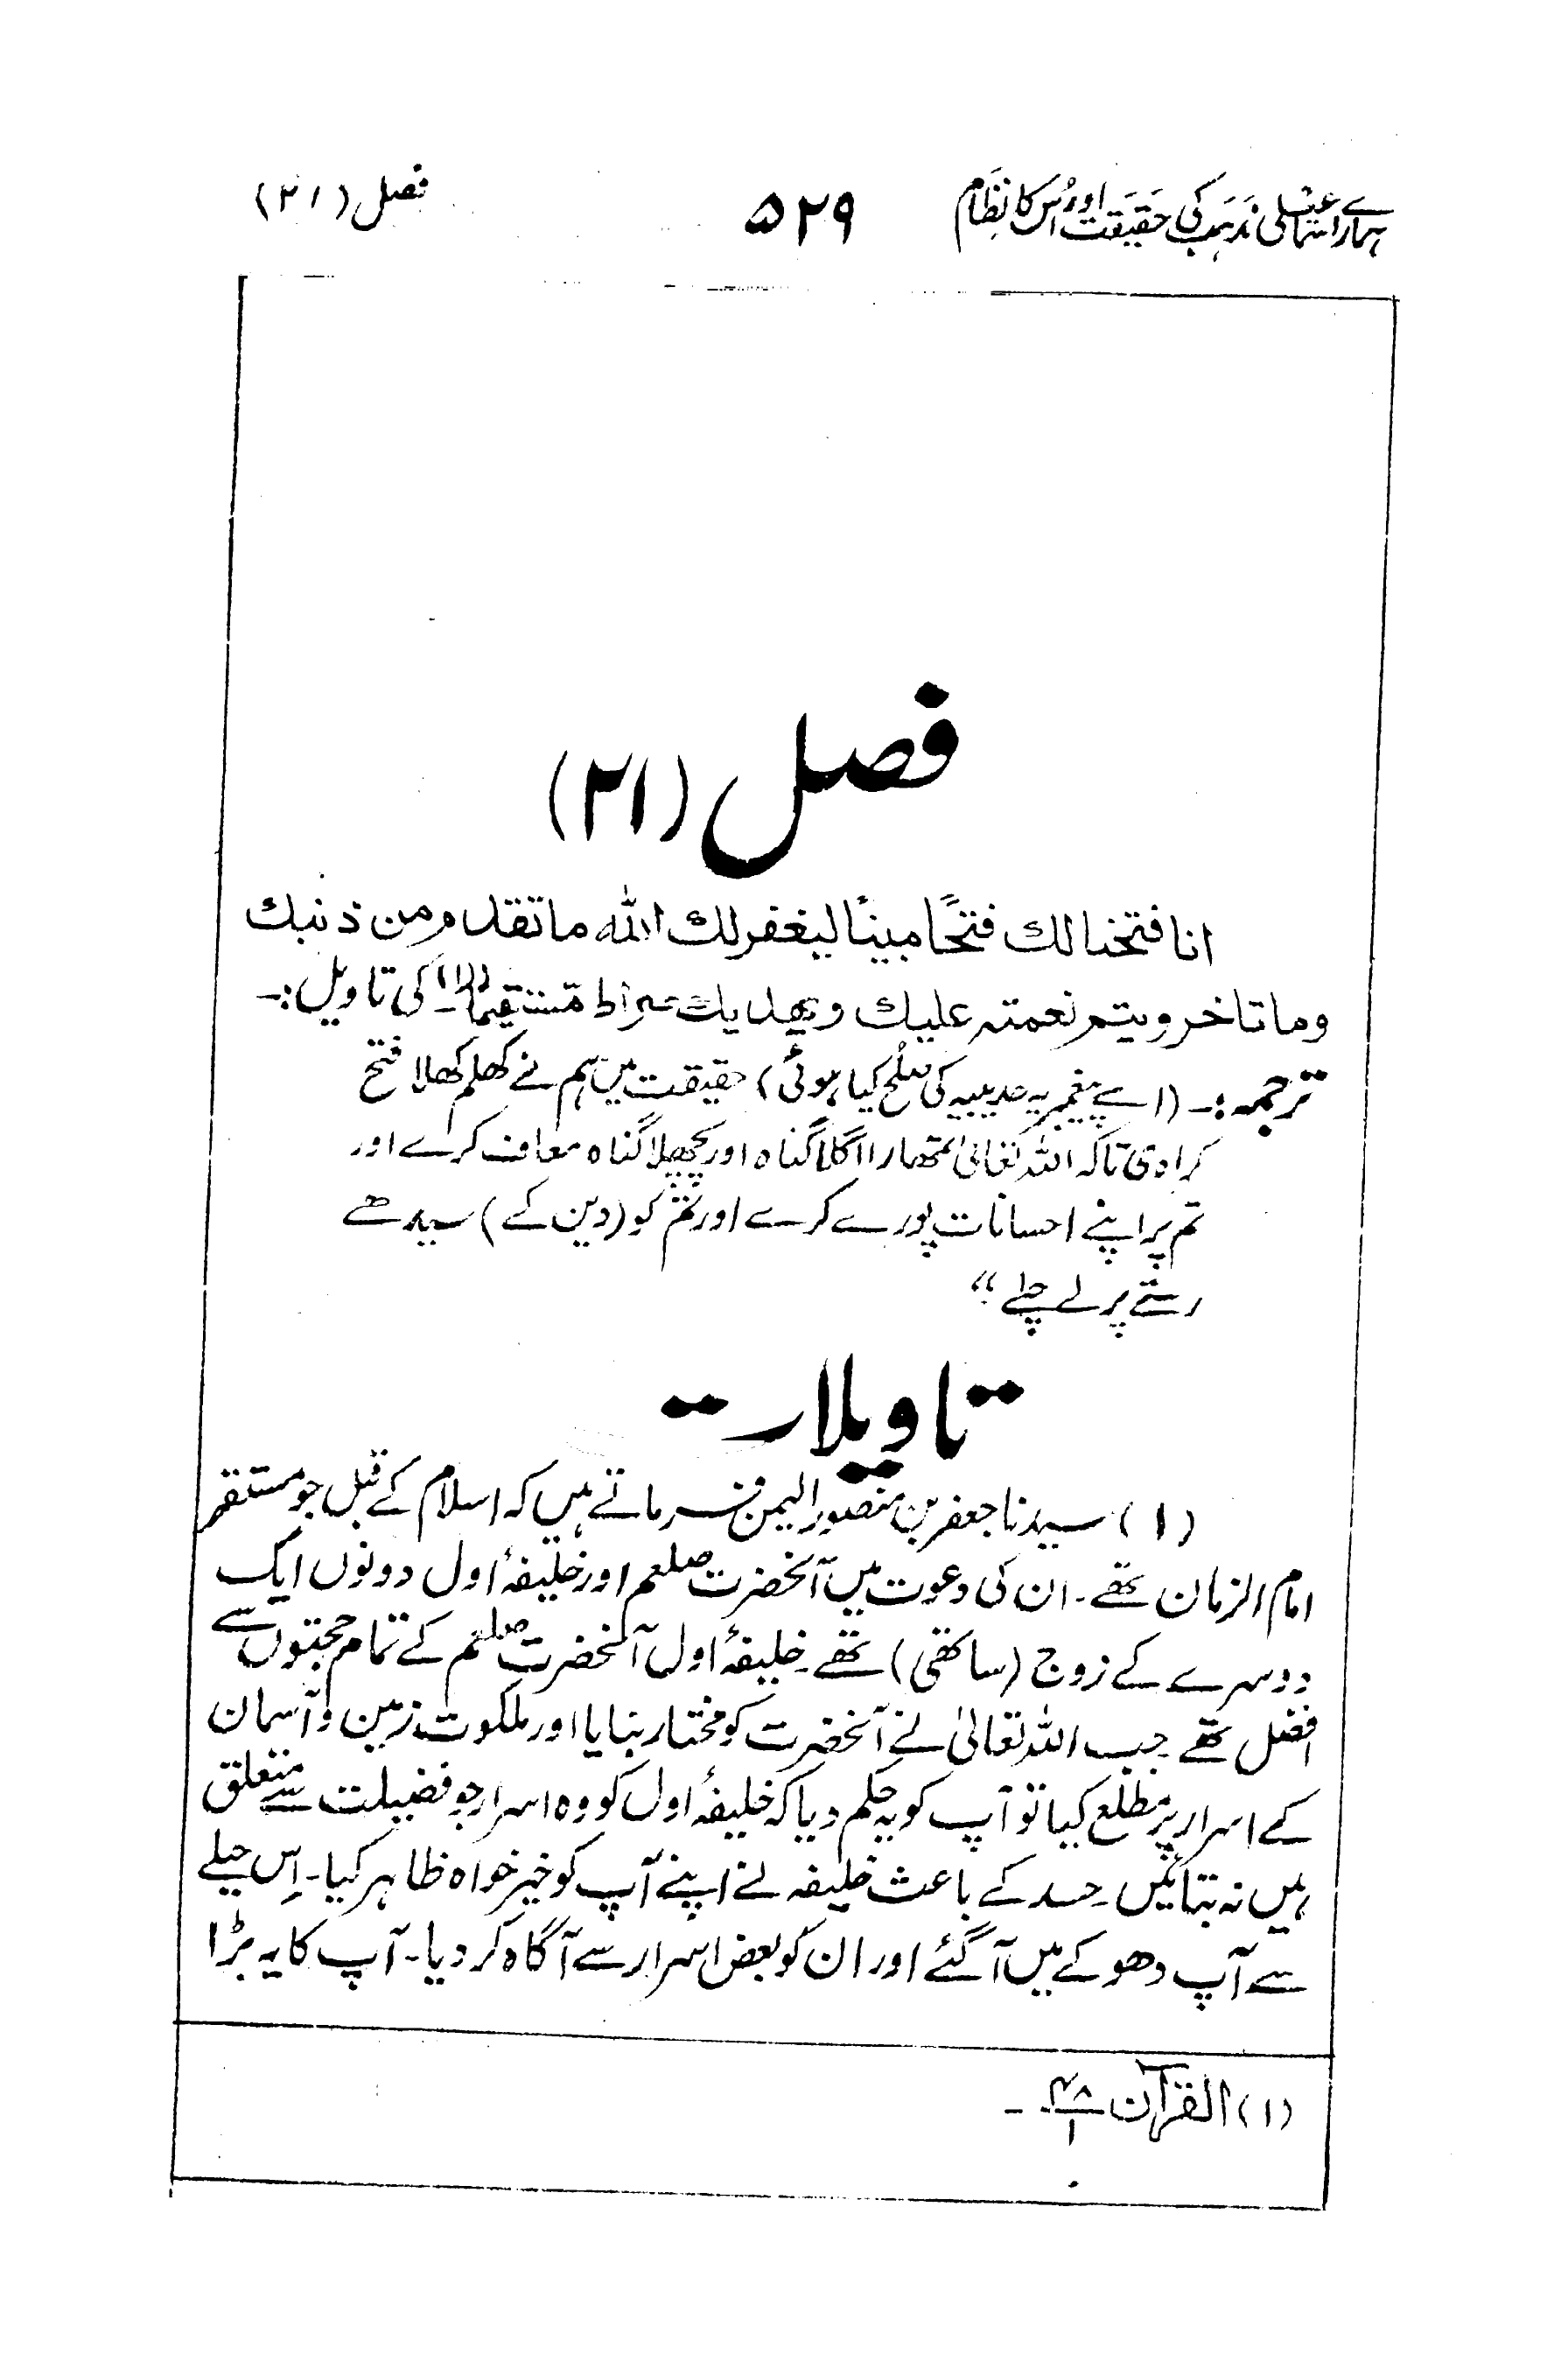 ہمارے اسماعیلی مذہب کی حقیقت اور اُس کا نِظَام ۵۲۹ فصل (۲۱)
فصل (۲۱)
انا فتحنا لك فتحًا مبينًا ليغفر لك الله ما تقدم من ذنبك
وما تاخر ويتم نعمته عليك ويهديك صراطا مستقيما (۱) کی تاویل :۔
ترجمہ :۔ (اے پیغمبر یہ حدیبیہ کی صُلح کیا ہوئی) حقیقت میں ہم نے کھلم کھلا فتح
کرادی تاکہ اللہ تعالیٰ تمھارا اگلا گناہ اور پچھلا گناہ معاف کرے اور
تم پر اپنے احسانات پورے کرے اور تم کو (دین کے) سیدھے
رستے پر لے چلے“
تاویلات
(۱) سیدنا جعفر بن منصور الیمن فرماتے ہیں کہ اسلام کے قبل جو مستقر
امام الزمان تھے۔ ان کی دعوت میں آنحضرت صلعم اور خلیفۂ اول دونوں ایک
دوسرے کے زوج (ساتھی) تھے۔ خلیفۂ اول آنحضرت صلعم کے تمام حجتوں سے
افضل تھے۔ جب اللہ تعالیٰ نے آنحضرت کو مختار بنایا اور ملکوت زمین و آسمان
کے اسرار پر مطلع کیا تو آپ کو یہ حکم دیا کہ خلیفۂ اول کو وہ اسرار جو فضیلت سے متعلق
ہیں نہ بتائیں۔ حسد کے باعث خلیفہ نے اپنے آپ کو خیر خواہ ظاہر کیا۔ اِس حیلے
سے آپ دھوکے میں آ گئے اور ان کو بعض اسرار سے آگاہ کر دیا۔ آپ کا یہ بڑا
(۱) القرآن ۴۸/۱ ۔